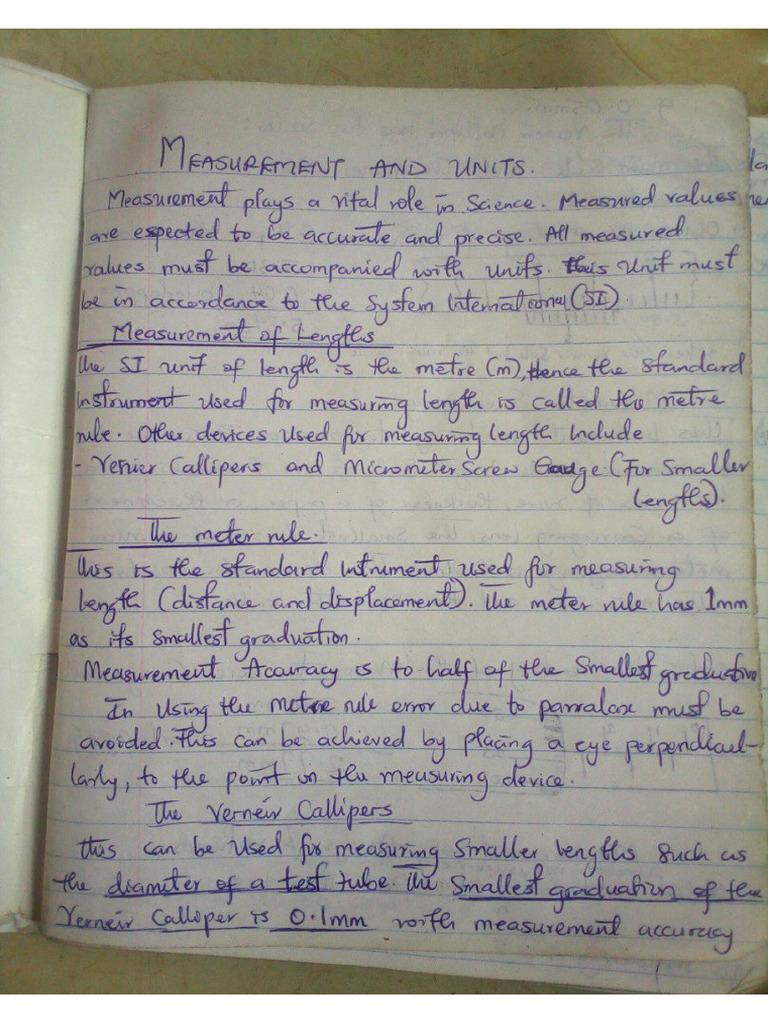 MEASUREMENT AND UNITS.
Measurement plays a vital role in Science. Measured values
are expected to be accurate and precise. All measured
values must be accompanied with units. this Unit must
be in accordance to the System International (SI).
Measurement of Lengths
the SI unit of length is the metre (m), Hence the standard
instrument used for measuring length is called the metre
rule. Other devices used for measuring length Include
- Vernier Callipers and Micrometer Screw Gaudge. (For smaller
lengths).
The meter rule.
this is the standard Intrument used for measuring
length (distance and displacement). The meter rule has 1mm
as its smallest graduation.
Measurement Accuracy is to half of the smallest graduation
In Using the metre rule error due to parralax must be
avoided. This can be achieved by placing a eye perpendicul-
larly, to the point on the measuring device.
The Verneir Callipers
this can be Used for measuring Smaller lengths such as
the diameter of a test tube. The Smallest graduation of the
Verneir Calloper is 0.1mm with measurement accuracy